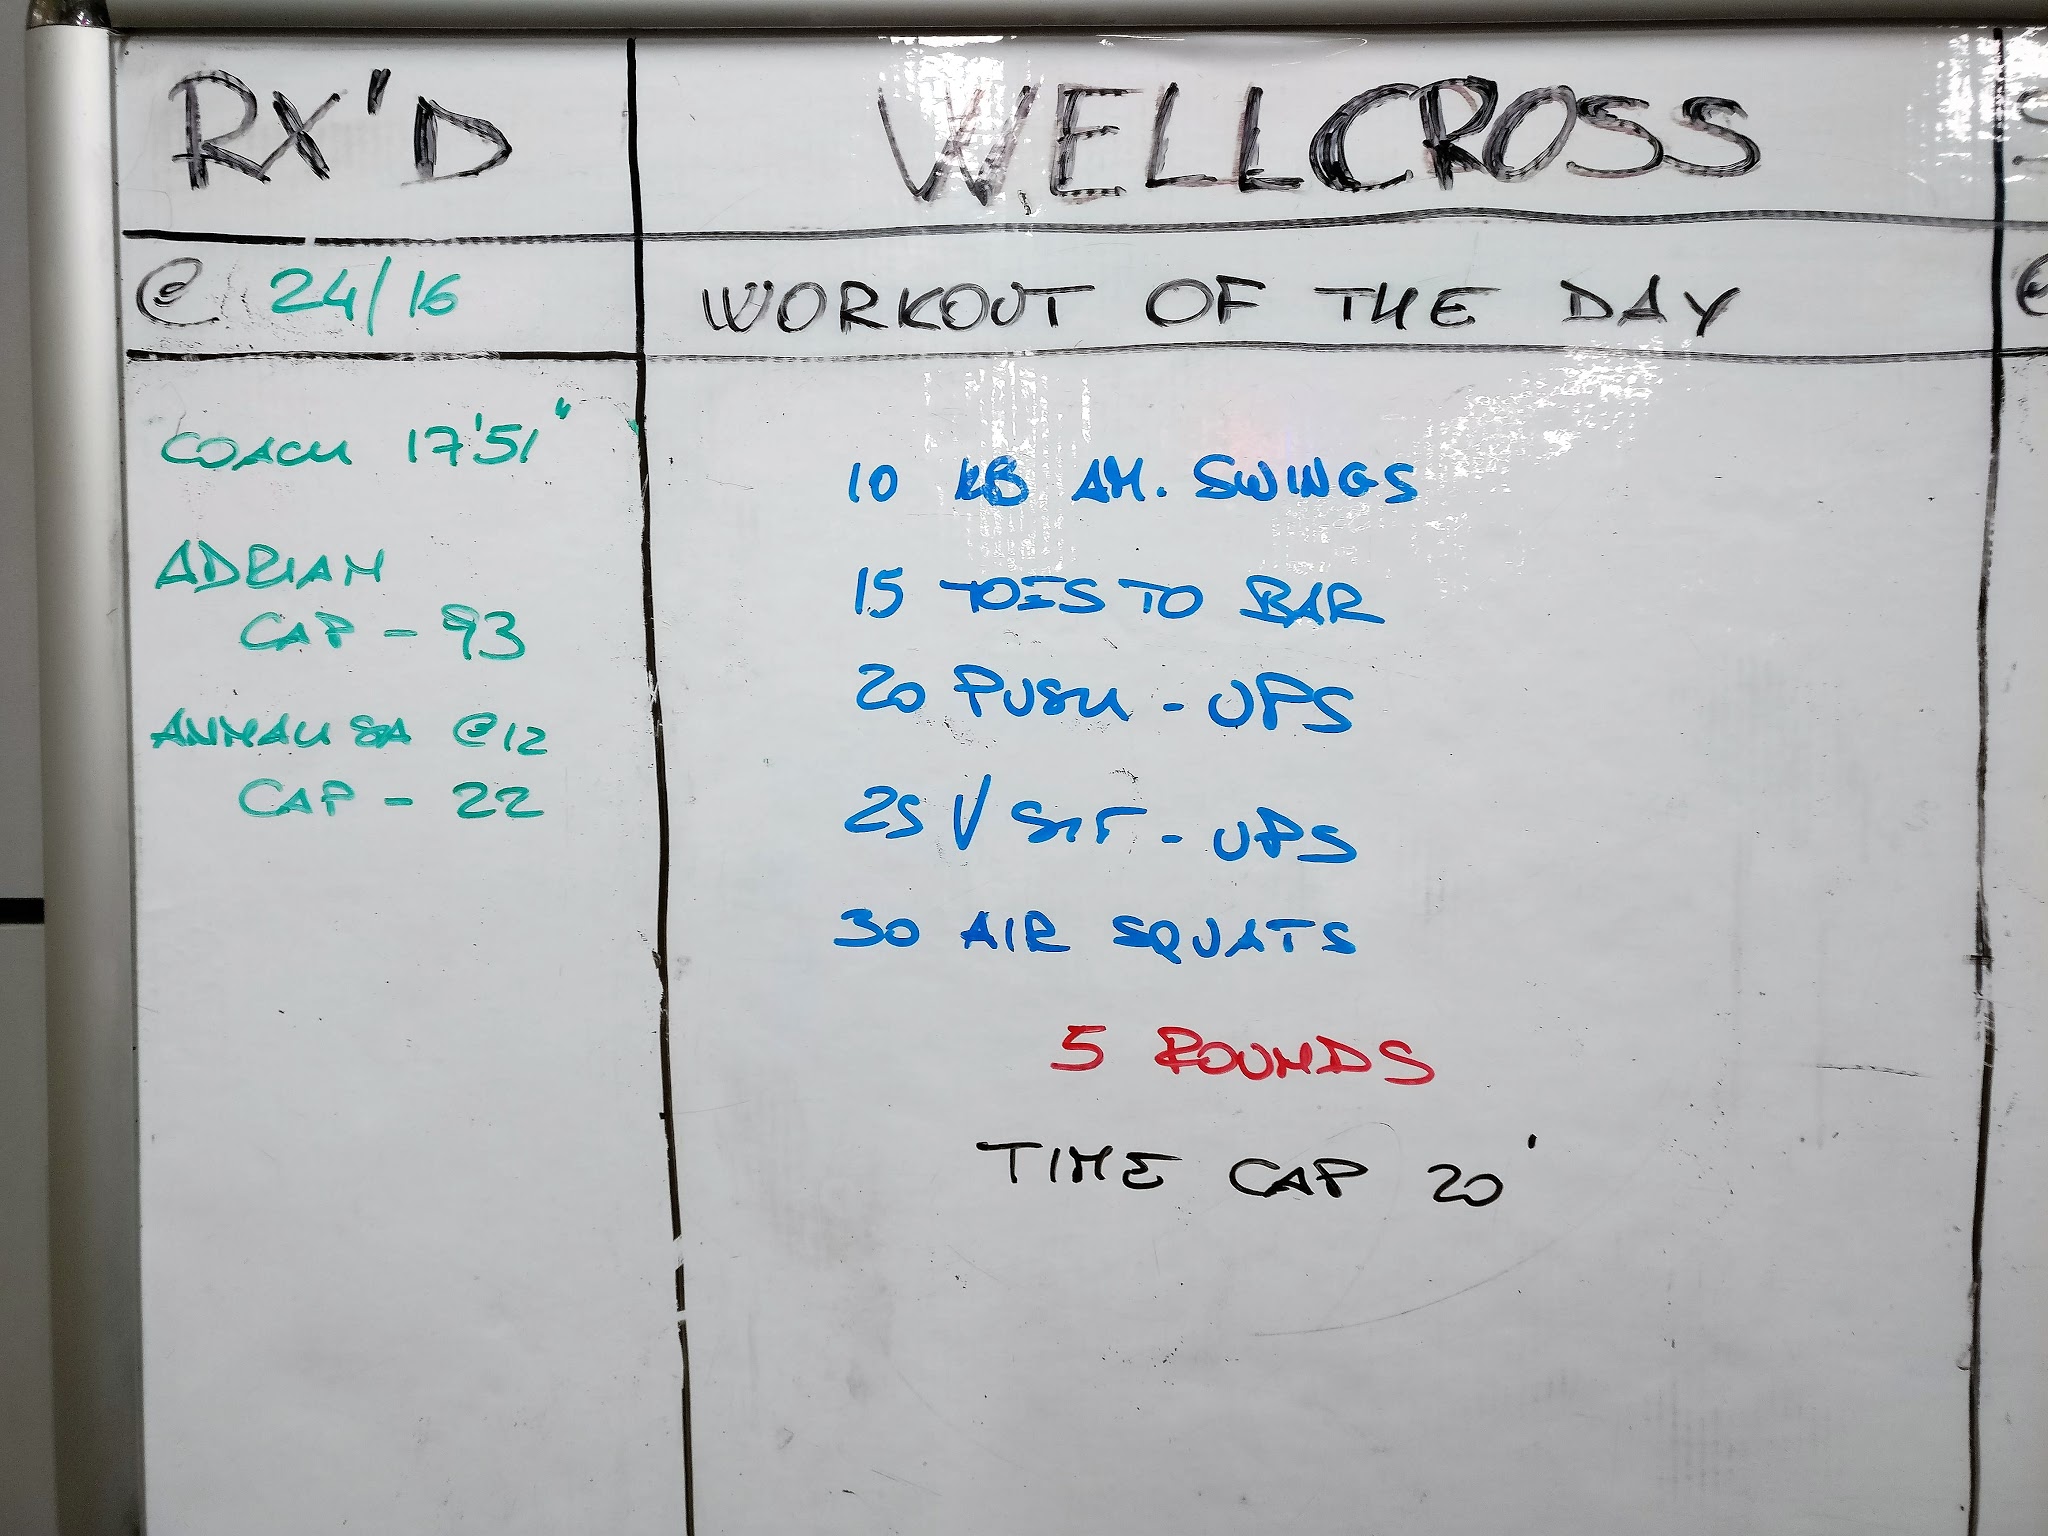 RX'D
@ 24/16
COACH 17'51"
ADRIAN
CAP - 93
ANNALISA @12
CAP - 22
WELLCROSS
WORKOUT OF THE DAY
10 KB AM. SWINGS
15 TOES TO BAR
20 PUSH-UPS
25 V SIT-UPS
30 AIR SQUATS
5 ROUNDS
TIME CAP 20'